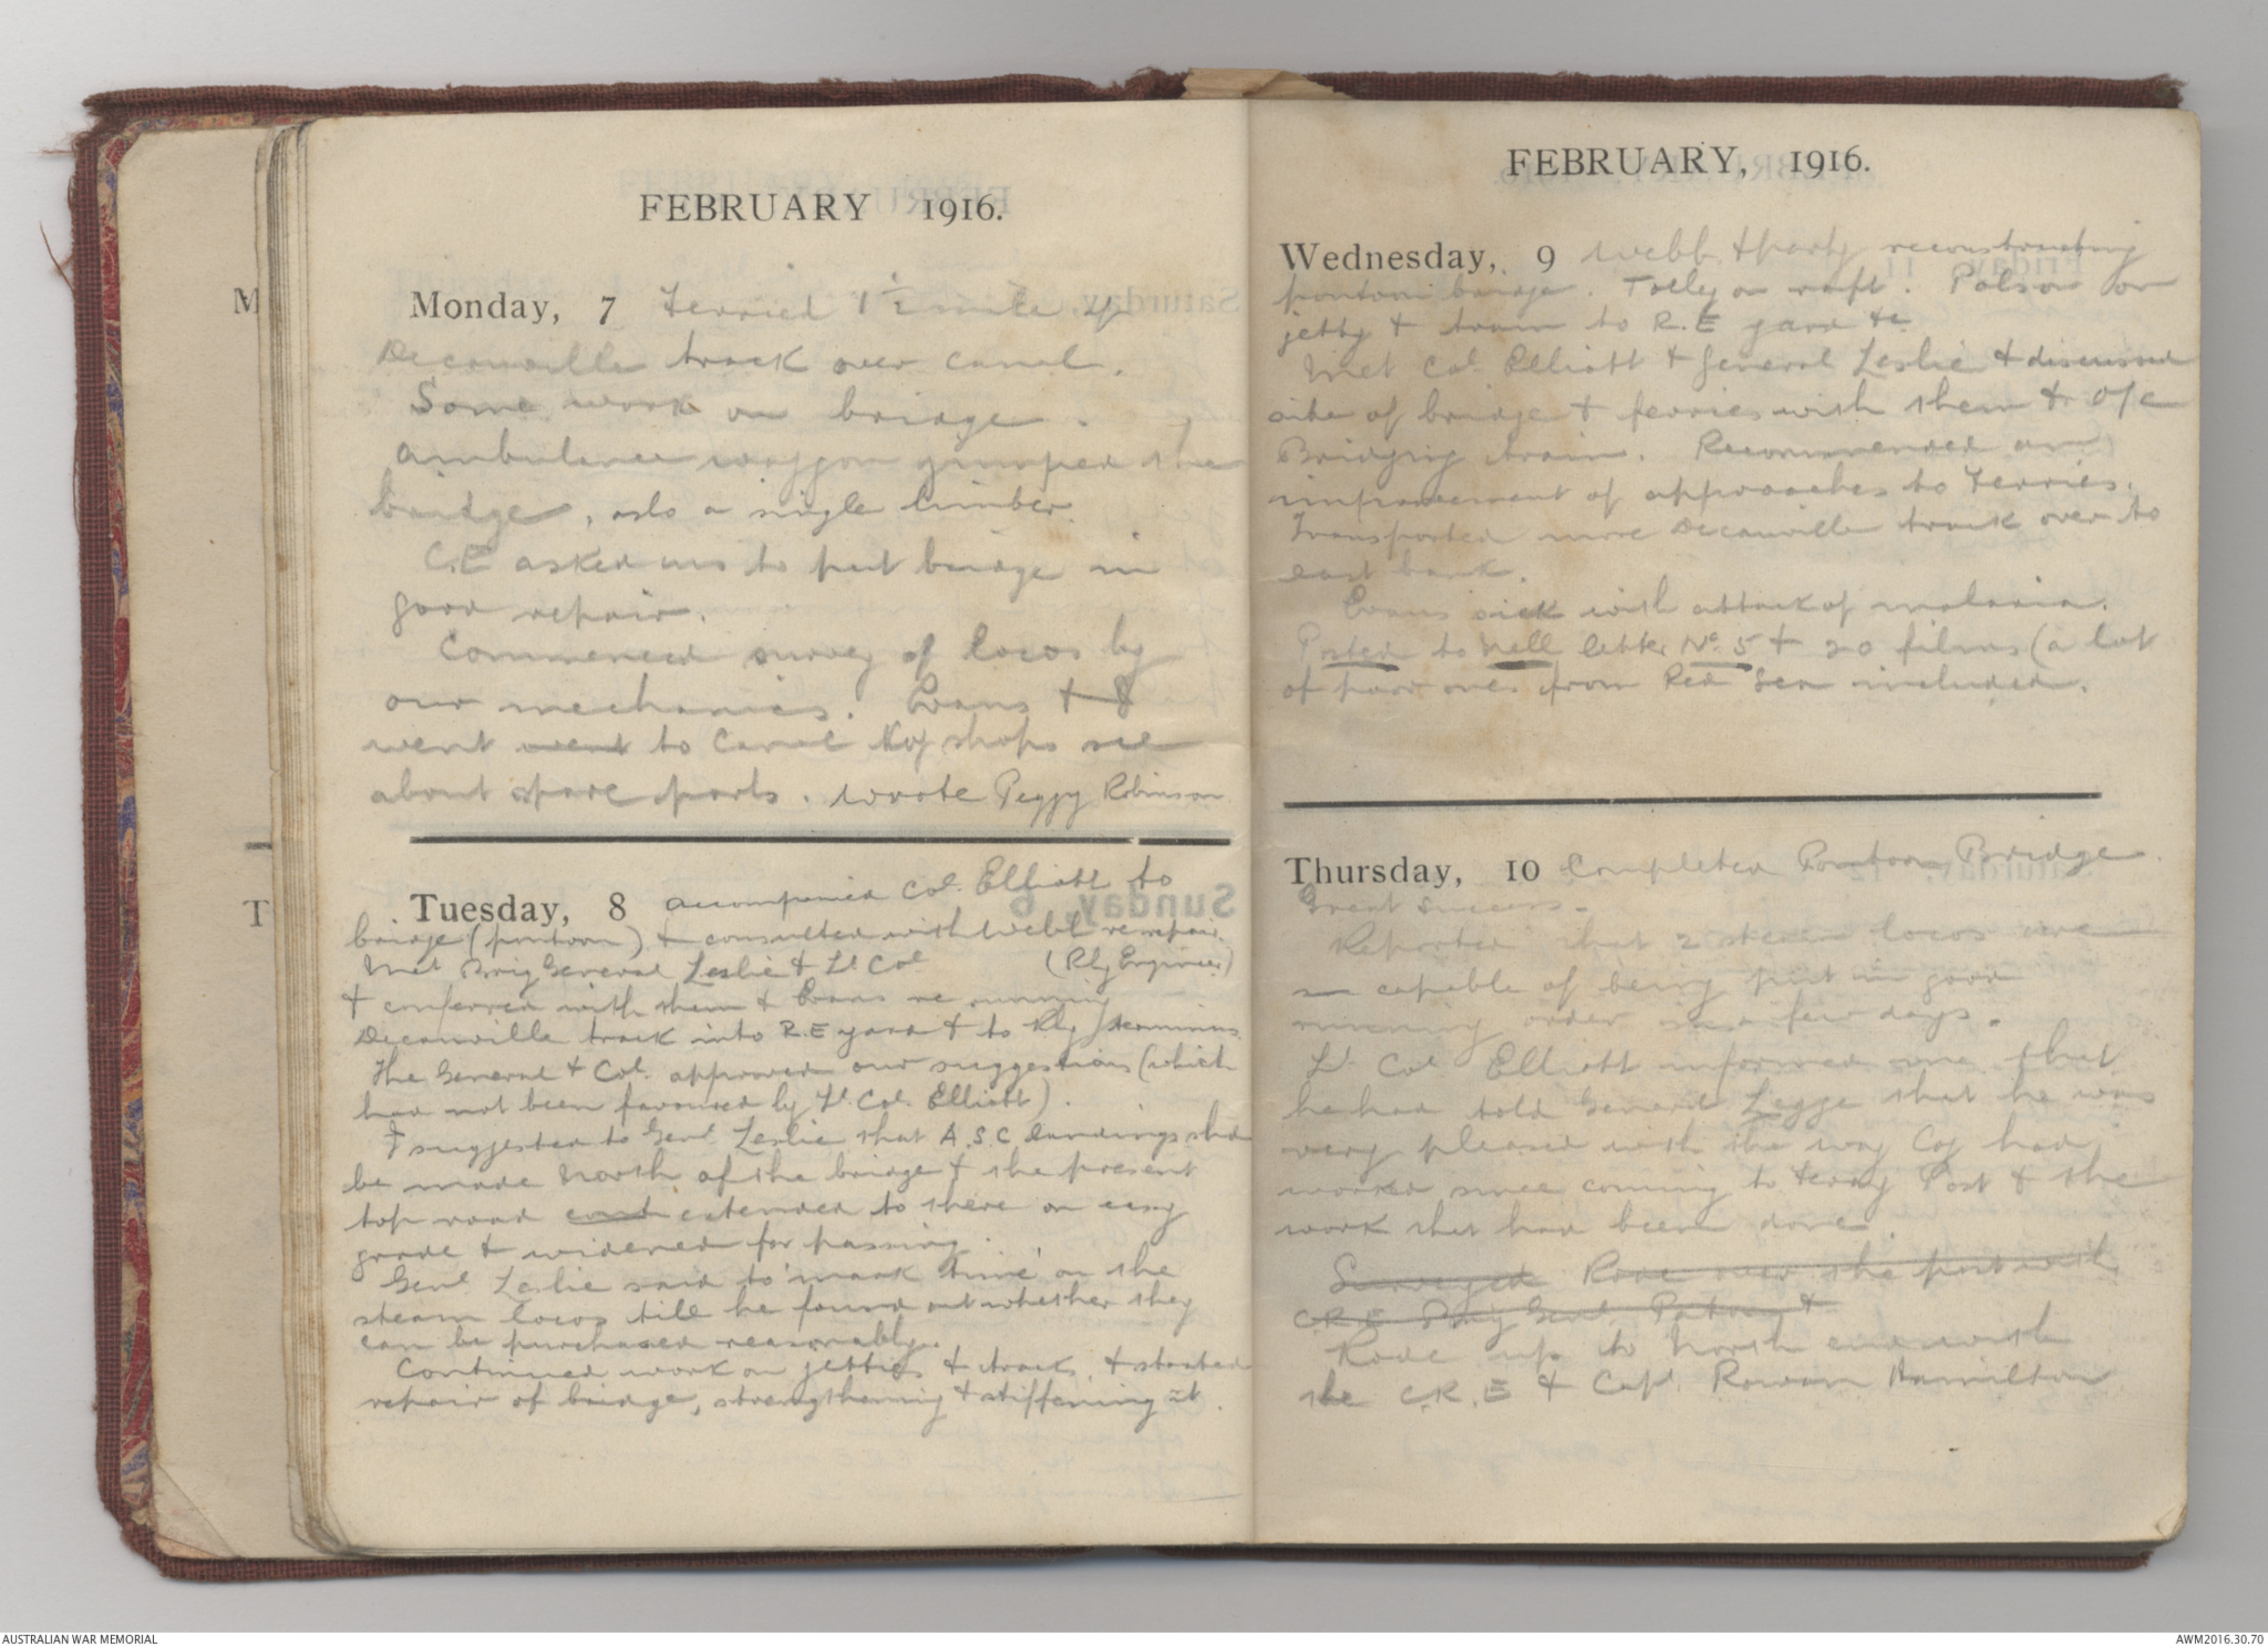 FEBRUARY 1916.
Monday, 7 Ferried 1 1/2 mile of
Decauville track over canal.
Some work on bridge.
Ambulance waggon jumped the
bridge, aslo a single limber.
C.E asked us to put bridge in
good repair.
Commenced survey of locos by
our mechanics. Evans & I
went went to Canal Coy shops see
about spare parts. Wrote Peggy Robinson
Tuesday, 8 Accompanied Col. Elliott to
bridge (pontoon) & consulted with Webb re repair.
Met Brig General Leslie & Lt Col (Rly Engineer)
& conferred with them & Evans re running
Decauville track into R.E yard & to Rly terminus.
The General & Col. approved our suggestions (which
had not been favoured by Lt. Col. Elliott).
I suggested to Genl Leslie that A.S.C landings shd
be made North of the bridge & the present
top road extended to there on easy
grade & widened for passing.
Genl Leslie said to 'mark time' on the
steam locos till he found out whether they
can be purchased reasonably.
Continued work on jetties & track, & started
repair of bridge, strengthening & stiffening it.
FEBRUARY, 1916.
Wednesday, 9 Webb & party reconstructing
pontoon bridge. Tolley on raft. Polson on
jetty & tram to R.E yard &c
Met Col. Elliott & General Leslie & discussed
site of bridge & ferries with them & O/C
Bridging train. Recommended an
improvement of approaches to Ferries.
Transported more Decauville track over to
east bank.
Evans sick with attack of malaria.
Posted to Nell letter No. 5 & 20 films (a lot
of poor ones from Red Sea included.
Thursday, 10 Completed Pontoon Bridge.
Great success.
Reported that 2 steam locos are
capable of being put in good
running order in a few days.
Lt. Col Elliott informed me that
he had told General Legge that he was
very pleased with the way Coy had
worked since coming to Ferry Post & the
work that had been done.
Surveyed Rode over the post with
C.R.E Brig Genl &
Rode up to North end with
the C.R.E & Capt. Rowan Hamilton
M
T
AUSTRALIAN WAR MEMORIAL
AWM2016.30.70